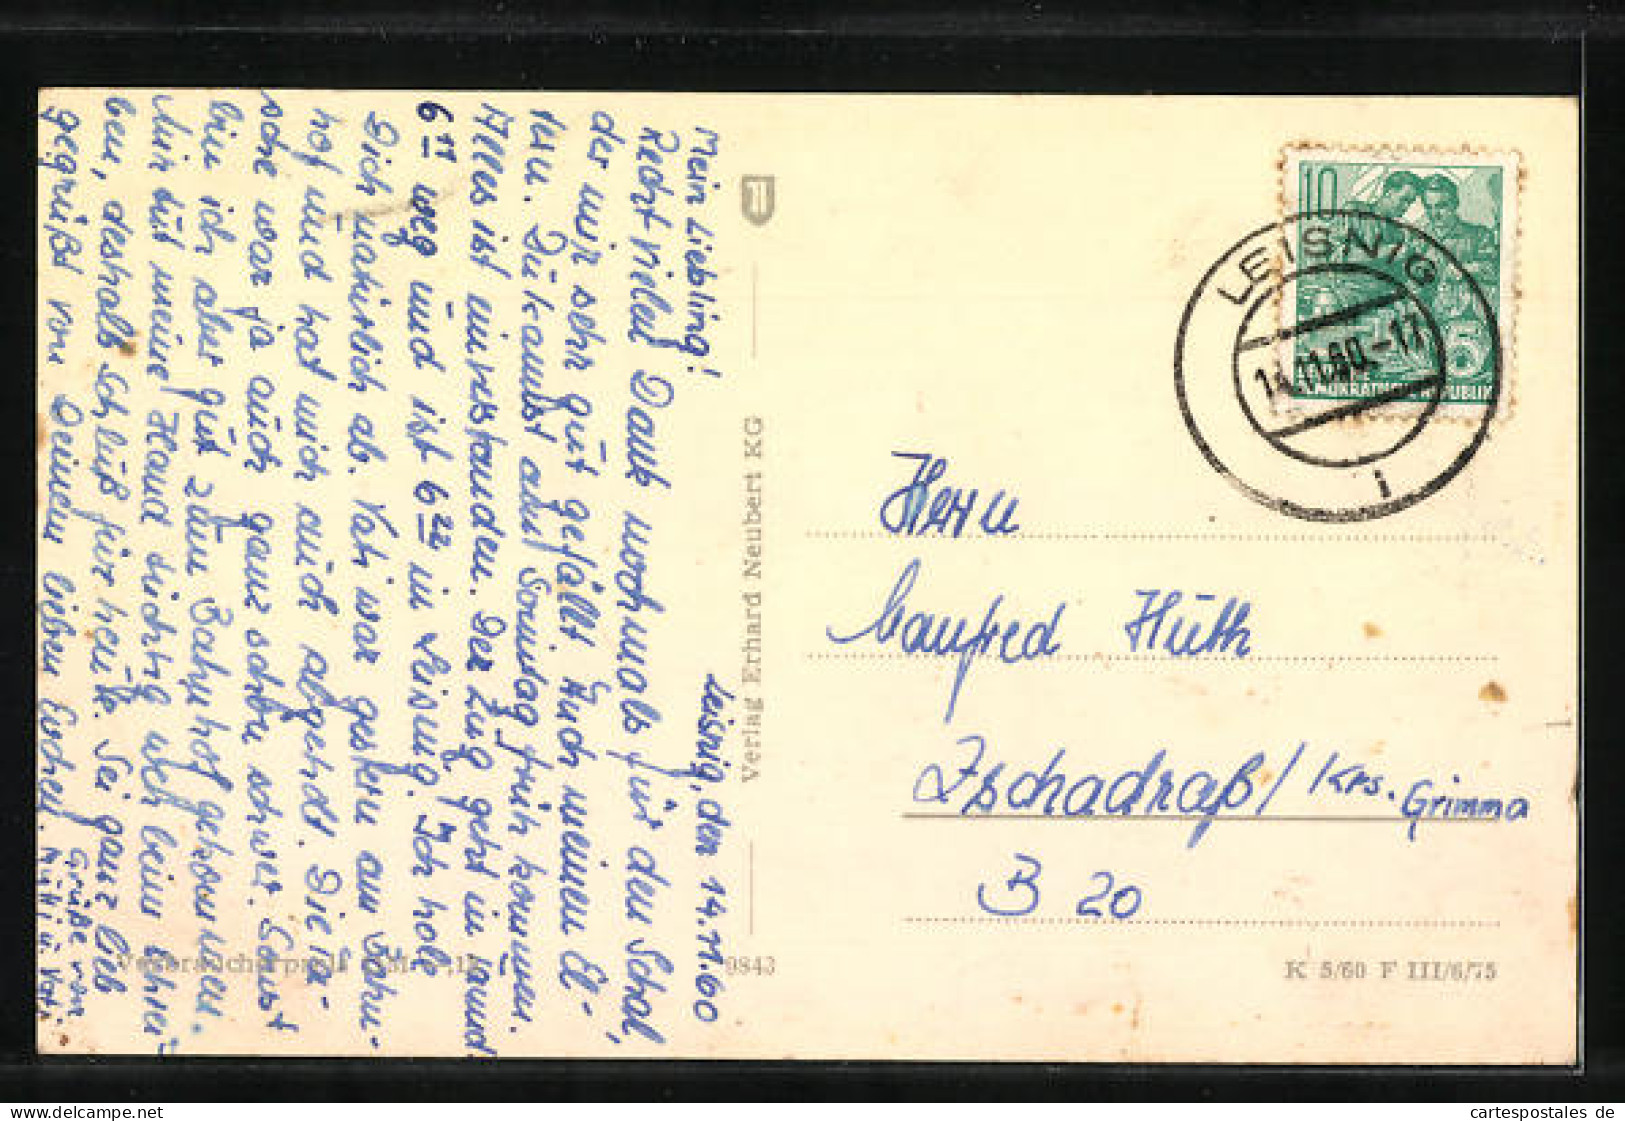 Leisnig, den 14.11.60
Mein Liebling!
Recht vielen Dank nochmals für den Schal,
der mir sehr gut gefällt. Auch meinen El-
tern. Du kannst am Sonntag früh kommen.
Alles ist einverstanden. Der Zug geht in
6 11 weg und ist 6 22 in Leisnig. Ich hole
Dich natürlich ab. Vati war gestern am Bahn-
hof und hat mich auch abgeholt. Die Ta-
sche war ja auch ganz schön schwer. Sonst
bin ich aber gut zum Bahnhof gekommen.
Mir tut meine Hand richtig weh beim Schrei-
ben, deshalb Schluß für heute. Sei ganz lieb
gegrüßt von Deinem lieben
Grüße von
Mutti u. Vati.
Verlag Erhard Neubert KG
9843
10
5
DEMOKRATISCHE REPUBLIK
LEISNIG
14.11.60.-17
i
Herrn
Manfred Hüth
Zschadraß / Krs. Grimma
B 20
K 5/60 F III/6/75
www.bartko-reher.de
cartespostales de